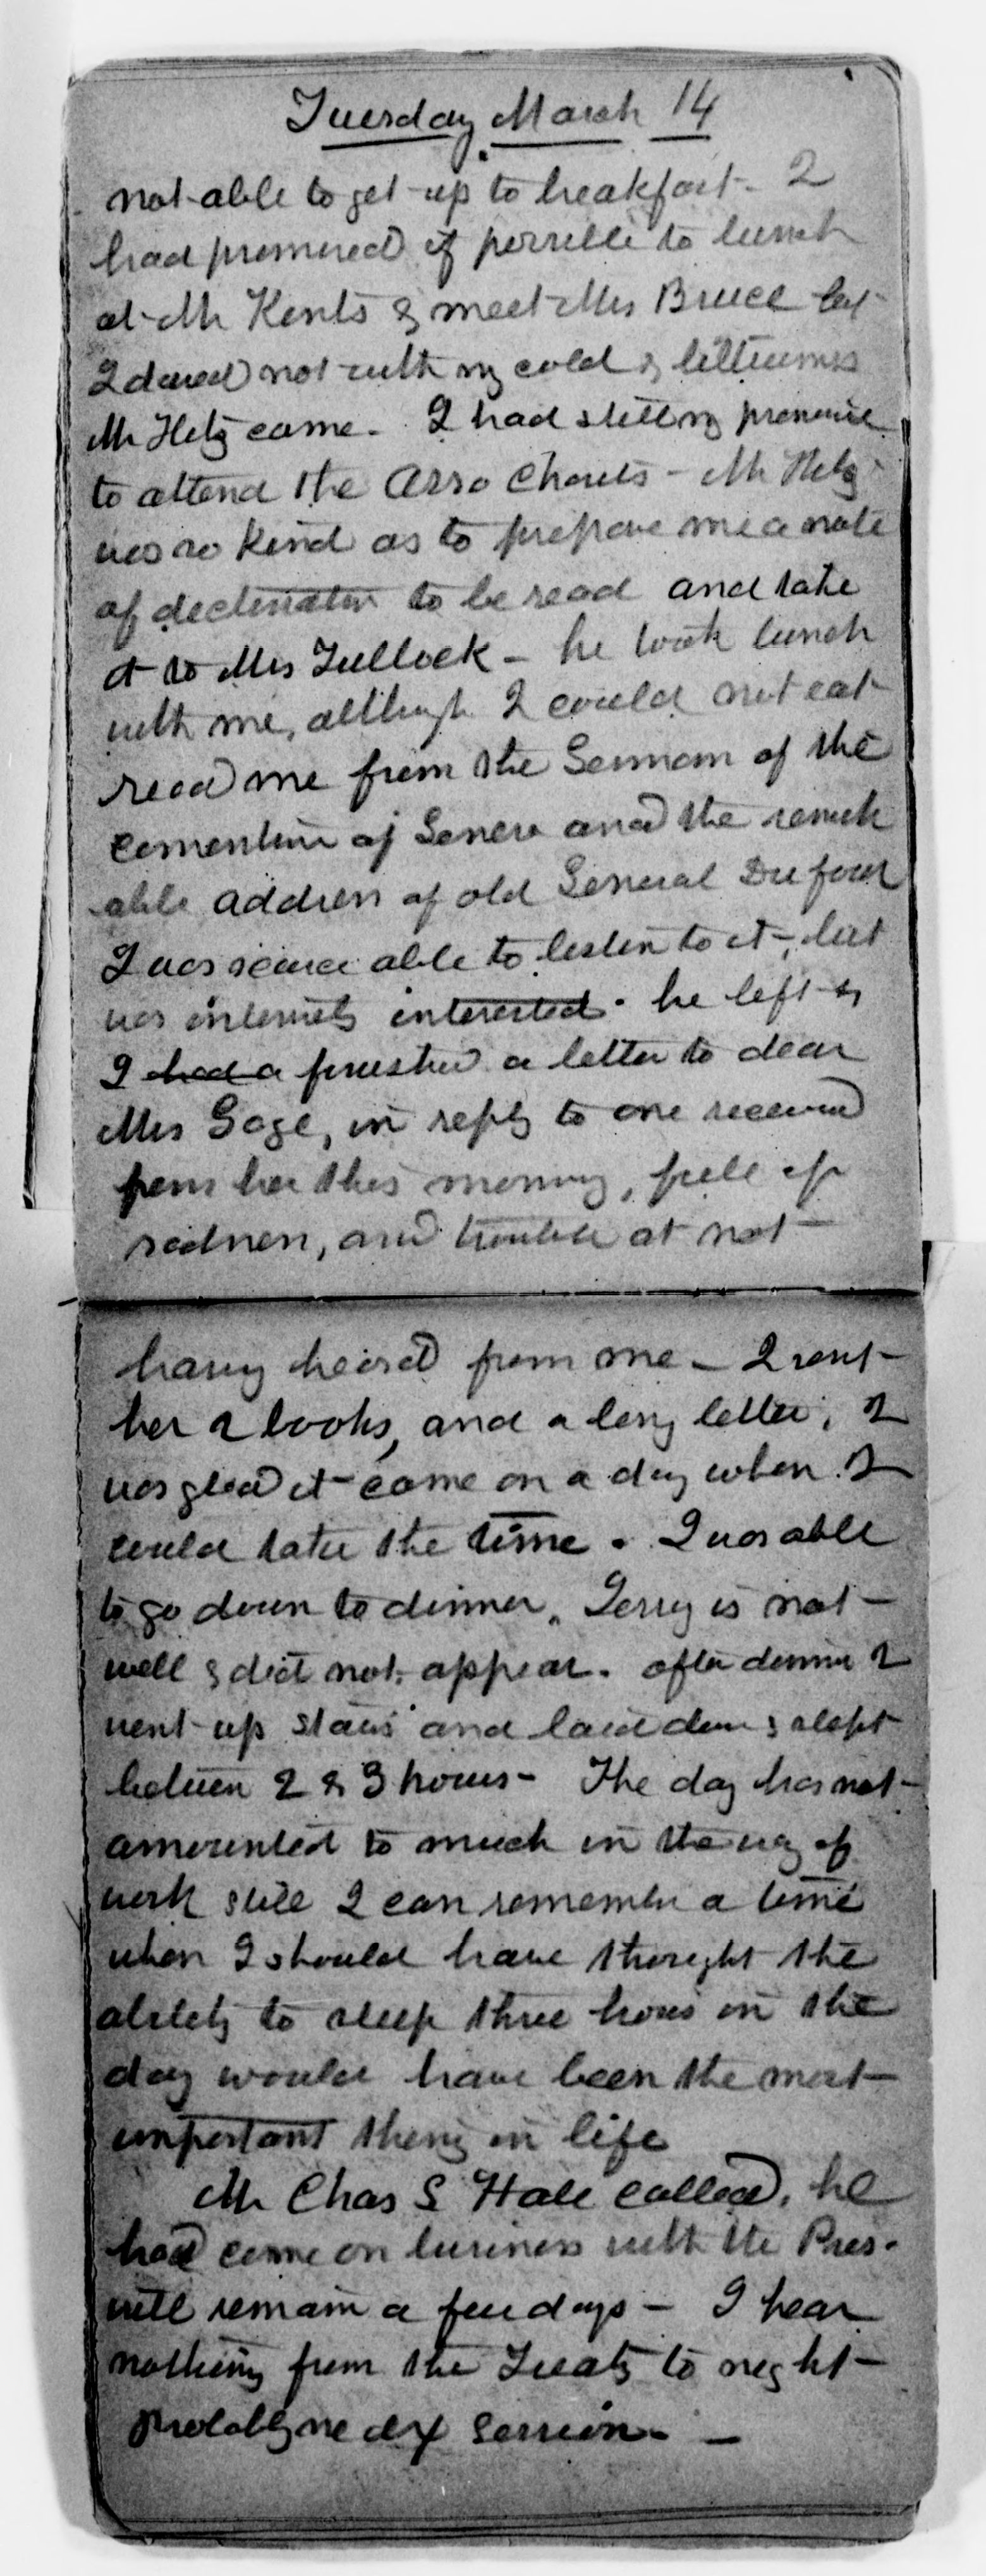 Tuesday March 14
not able to get up to breakfast - I
had promised if possible to lunch
at Mr Kents & meet Mrs Bruce but
I dared not with my cold &
Mr Hitz came. I had still my promise
to attend the Asso Charits - Mr Hitz
was so kind as to prepare me a note
of declination to be read and take
it to Mrs Tullock - he took lunch
with me, although I could not eat
read me from the Sermom of the
convention of Geneva and the remark
able address of old General Dufour
I was scarce able to listen to it -, but
was intensely interested. he left &
I had a finished a letter to dear
Mrs Gage, in reply to one received
from her this morning, full of
sadness, and trouble at not
having heard from me - I sent
her 2 books, and a long letter, I
was glad it came on a day when I
could take the time. I was able
to go down to dinner. Gerry is not
well & did not appear. after dinner I
went up stairs and laid down & slept
between 2 & 3 hours - The day has not
amounted to much in the way of
work still I can remember a time
when I should have thought the
ability to sleep three hours in the
day would have been the most
important thing in life
Mr Chas S Hale called, he
had come on business with the Pres.
will remain a few days - I hear
nothing from the Treaty to night -
probably no Ex Session. -